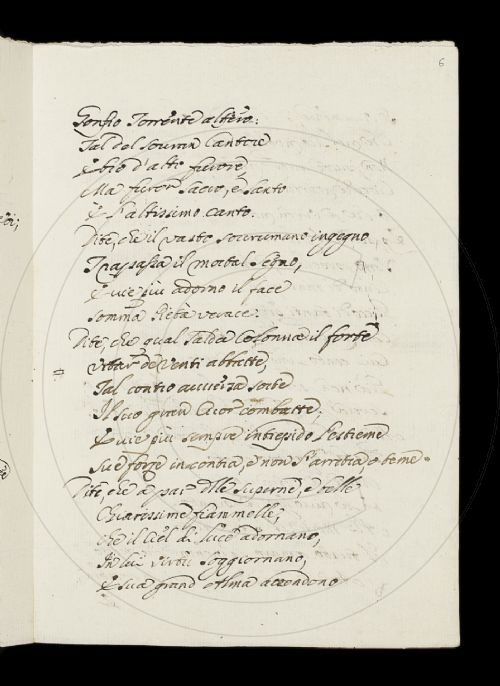 6
Gonfio Torrente altero:
Tal del sovran Cantore
È bio d'alto furore
Ma furor Sacro, e Santo
È l'altissimo canto.
Dite, che il vasto sovrumano ingegno
Trapassa il mortal segno,
E vie più adorno il face
Somma Pietà verace.
Dite, che qual salda Colonna il forte
Urtar de venti abbatte,
Tal contro avversa sorte
Il suo gran Cuor combatte,
E vie più sempre intrepido l'estreme
Sue forze incontra, e non s'arretra o teme.
Dite, che a par delle superne, e belle
Chiarissime fiammelle,
Che il Ciel di luce adornano,
In lui virtù soggiornano,
E sua grand'Alma accendono